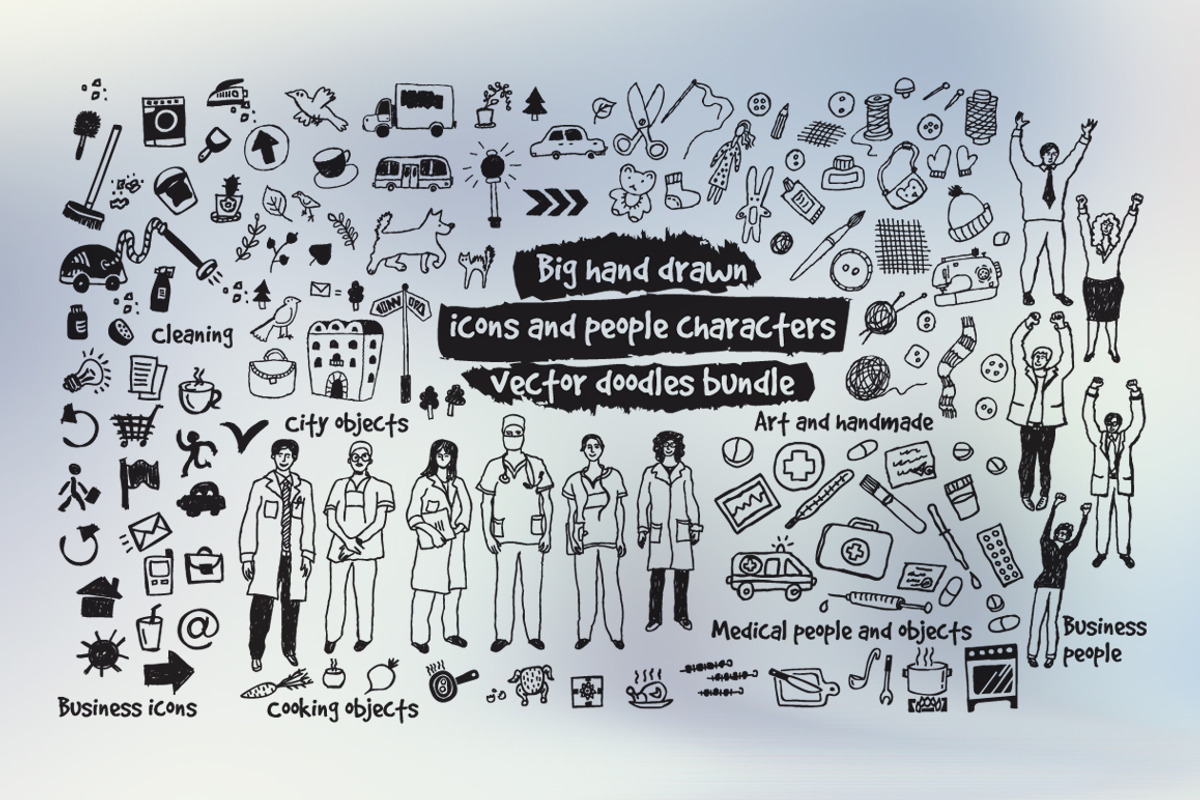 Big hand drawn
icons and people characters
vector doodles bundle
Cleaning
City objects
Art and handmade
Medical people and objects
Business
people
Business icons
Cooking objects
@